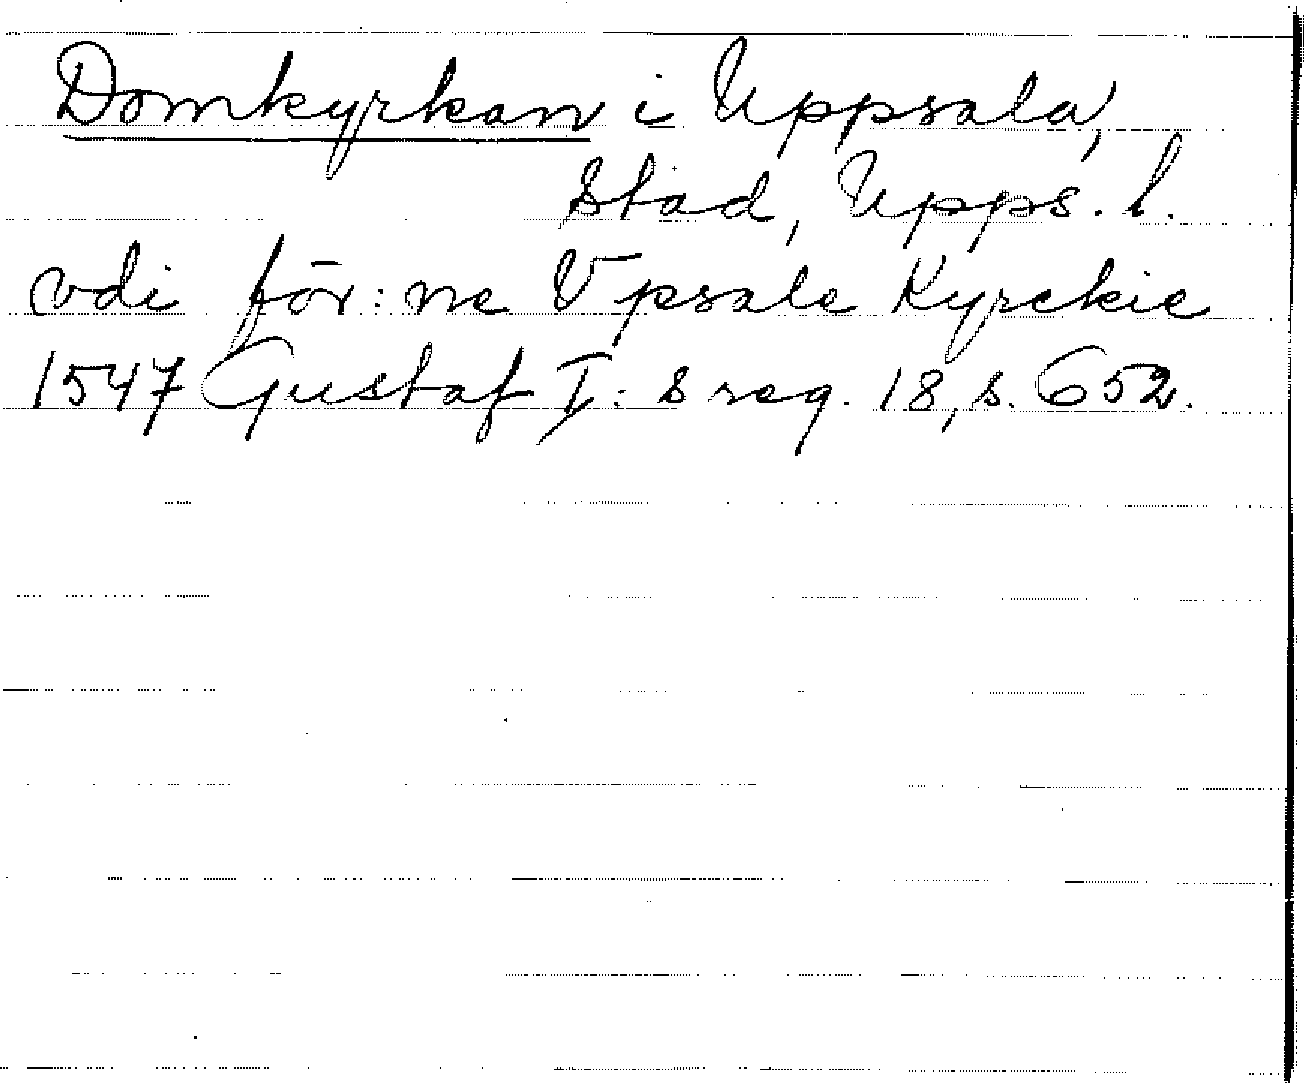 Domkyrkan i Uppsala,
stad, Upps. l.
vdi för:ne Vpsale Kyrckie
1547 Gustaf I:s reg. 18, s. 652.